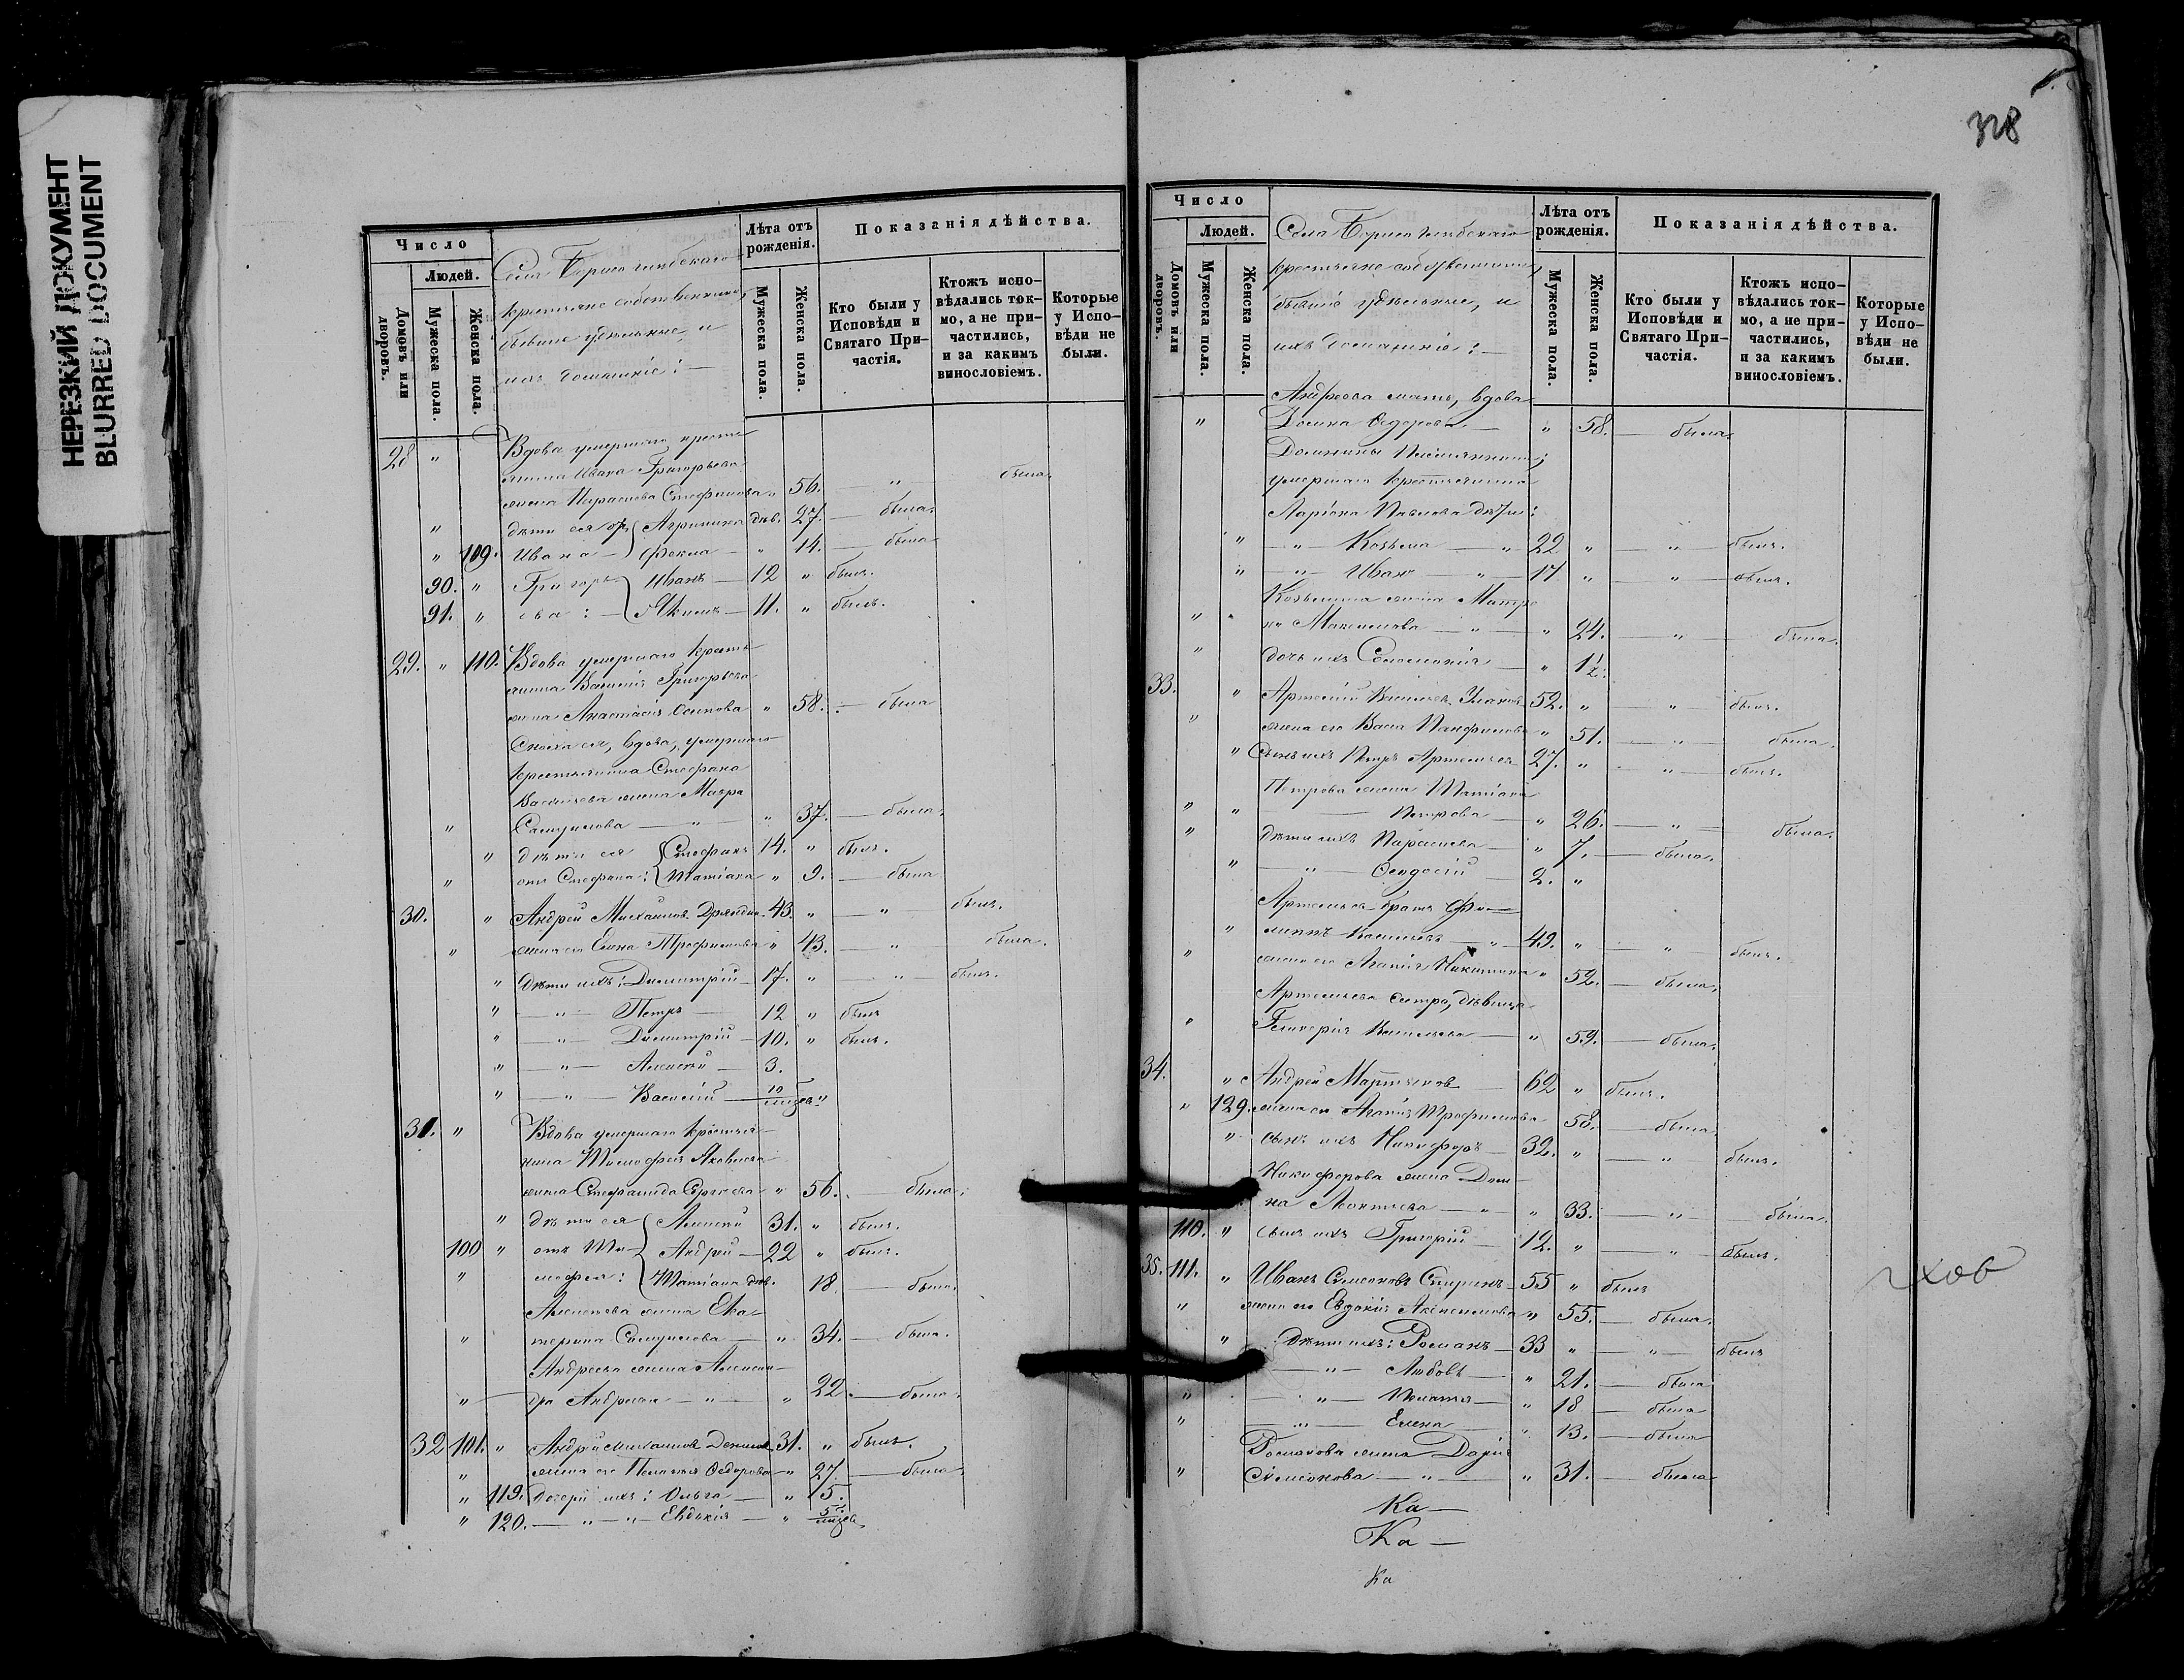 НЕРЕЗКИЙ ДОКУМЕНТ
BLURRED DOCUMENT
Число
Людей.
Домовъ или дворовъ.
Мужеска пола.
Женска пола.
Села Борисоглѣбскаго
крестьяне собственники,
бывшие удѣльные, и
ихъ домашніе: —
Лѣта отъ рожденія.
Мужеска пола.
Женска пола.
Показанія дѣйства.
Кто были у Исповѣди и Святаго Причастія.
Ктожъ исповѣдались токмо, а не причастились, и за какимъ винословіемъ.
Которые у Исповѣди не были.
28 " Вдова умершаго кресть-
янина Ивана Григорьева
жена Парасковья Стефанова " 56. — " — была.
" дѣти ея отъ Агрипина дѣв. 27. — была.
" 109. Ивана — Фекла — " 14. — была
90. " Григорь Иванъ — 12 " былъ.
91. " ева : — Якимъ — 11. " былъ.
29. " 110. Вдова умершаго кресть-
янина Василія Григорьева
жена Анастасія Осипова " 58. — была
Сноха ея, вдова, умершаго
крестьянина Стефана
Васильева жена Мавра
" Самуилова — " — " 37. — была.
" дѣти ея Стефанъ 14. " былъ.
" отъ Стефана: Татіана " 9. — была
30. " Андрей Михайлов. 43. " — " — былъ.
" жена его Елена Трофимова " 43. — " — была.
" Дѣти ихъ: Димитрій — 17. " — " — былъ.
" — " — Петръ — 12 " былъ
" — " — Димитрій — 10. " былъ.
" — " — Алексѣй — 3.
" — " — Василій — 10 мѣсяц. "
31. " Вдова умершаго крестья-
нина Тимофея Яковлева
жена Стефанида Сергѣева " 56. — была.
" дѣти ея Алексѣй 31. " былъ.
100 " отъ Ти- Андрей — 22 " былъ.
" мофея: Татіана дѣв. 18. — была.
Алексѣева жена Ека-
" терина Самуилова — " 34. — была.
Андреева жена Алексан-
" дра Андреева — " — " 22. — была.
32 101. " Андрей Михайлов 31. " былъ.
" жена его Пелагея Ѳедорова — " 27. — была
" 119. Дочери ихъ: Ольга — " 5.
" 120. — " — " — Евдокія — " 5 мѣсяц.
328
Число
Людей.
Домовъ или дворовъ.
Мужеска пола.
Женска пола.
Села Борисоглѣбскаго
крестьяне собственники,
бывшіе удѣльные, и
ихъ домашніе: —
Лѣта отъ рожденія.
Мужеска пола.
Женска пола.
Показанія дѣйства.
Кто были у Исповѣди и Святаго Причастія.
Ктожъ исповѣдались токмо, а не причастились, и за какимъ винословіемъ.
Которые у Исповѣди не были.
Андреева мать, вдова
" Домна Ѳедорова — " 58. — была.
Домнины племянники,
умершаго крестьянина
Ларіона Павлова дѣти:
" — " — Козьма — " 22 " — " — былъ.
" — " — Иванъ — " — 17 " — " — былъ.
Козьмина жена Матре
" на Максимова — " — " 24. — " — была.
" дочь ихъ Соломонія — " 1½.
33. " Артемій Васильев. 52. " — " — былъ.
" жена его Васса Панфилова " 51. — " — была.
" Сынъ ихъ Петръ Артемьев 27. " — " — былъ.
Петрова жена Татіана
" — Петрова — " 26. — " — была.
" Дѣти ихъ Параскева — " 7. — была.
" — " — Ѳеодосій — 2. "
Артемьев братъ Фи-
" липпъ Васильевъ — " — 49. " — " — былъ.
" жена его Агапія Никитина " 52. — была.
Артемьева сестра, дѣвица
" Гликерія Васильева — " 59. — была.
34. " Андрей Мартыновъ 62 " былъ.
" 129. жена его Агапія Трофимова 58. — была.
" сынъ ихъ Никифоръ — 32. " — " — былъ.
Никифорова жена Дом-
на Леонтьева — " — " 33. — " — была.
110. " сынъ ихъ Григорій — 12. " — " — былъ.
35. 111. " Иванъ Симеоновъ 55 " былъ
" жена его Евдокія " 55. — была.
" Дѣти ихъ: Романъ — 33 " — " — былъ
— " — Любовь — " 21. — была
" — " — Пелагея — " 18 — была
" — " — Елена " 13. — была
Романова жена Дарія
" Симеонова — " — " 31. — была
Ка —
Ка —
Ка